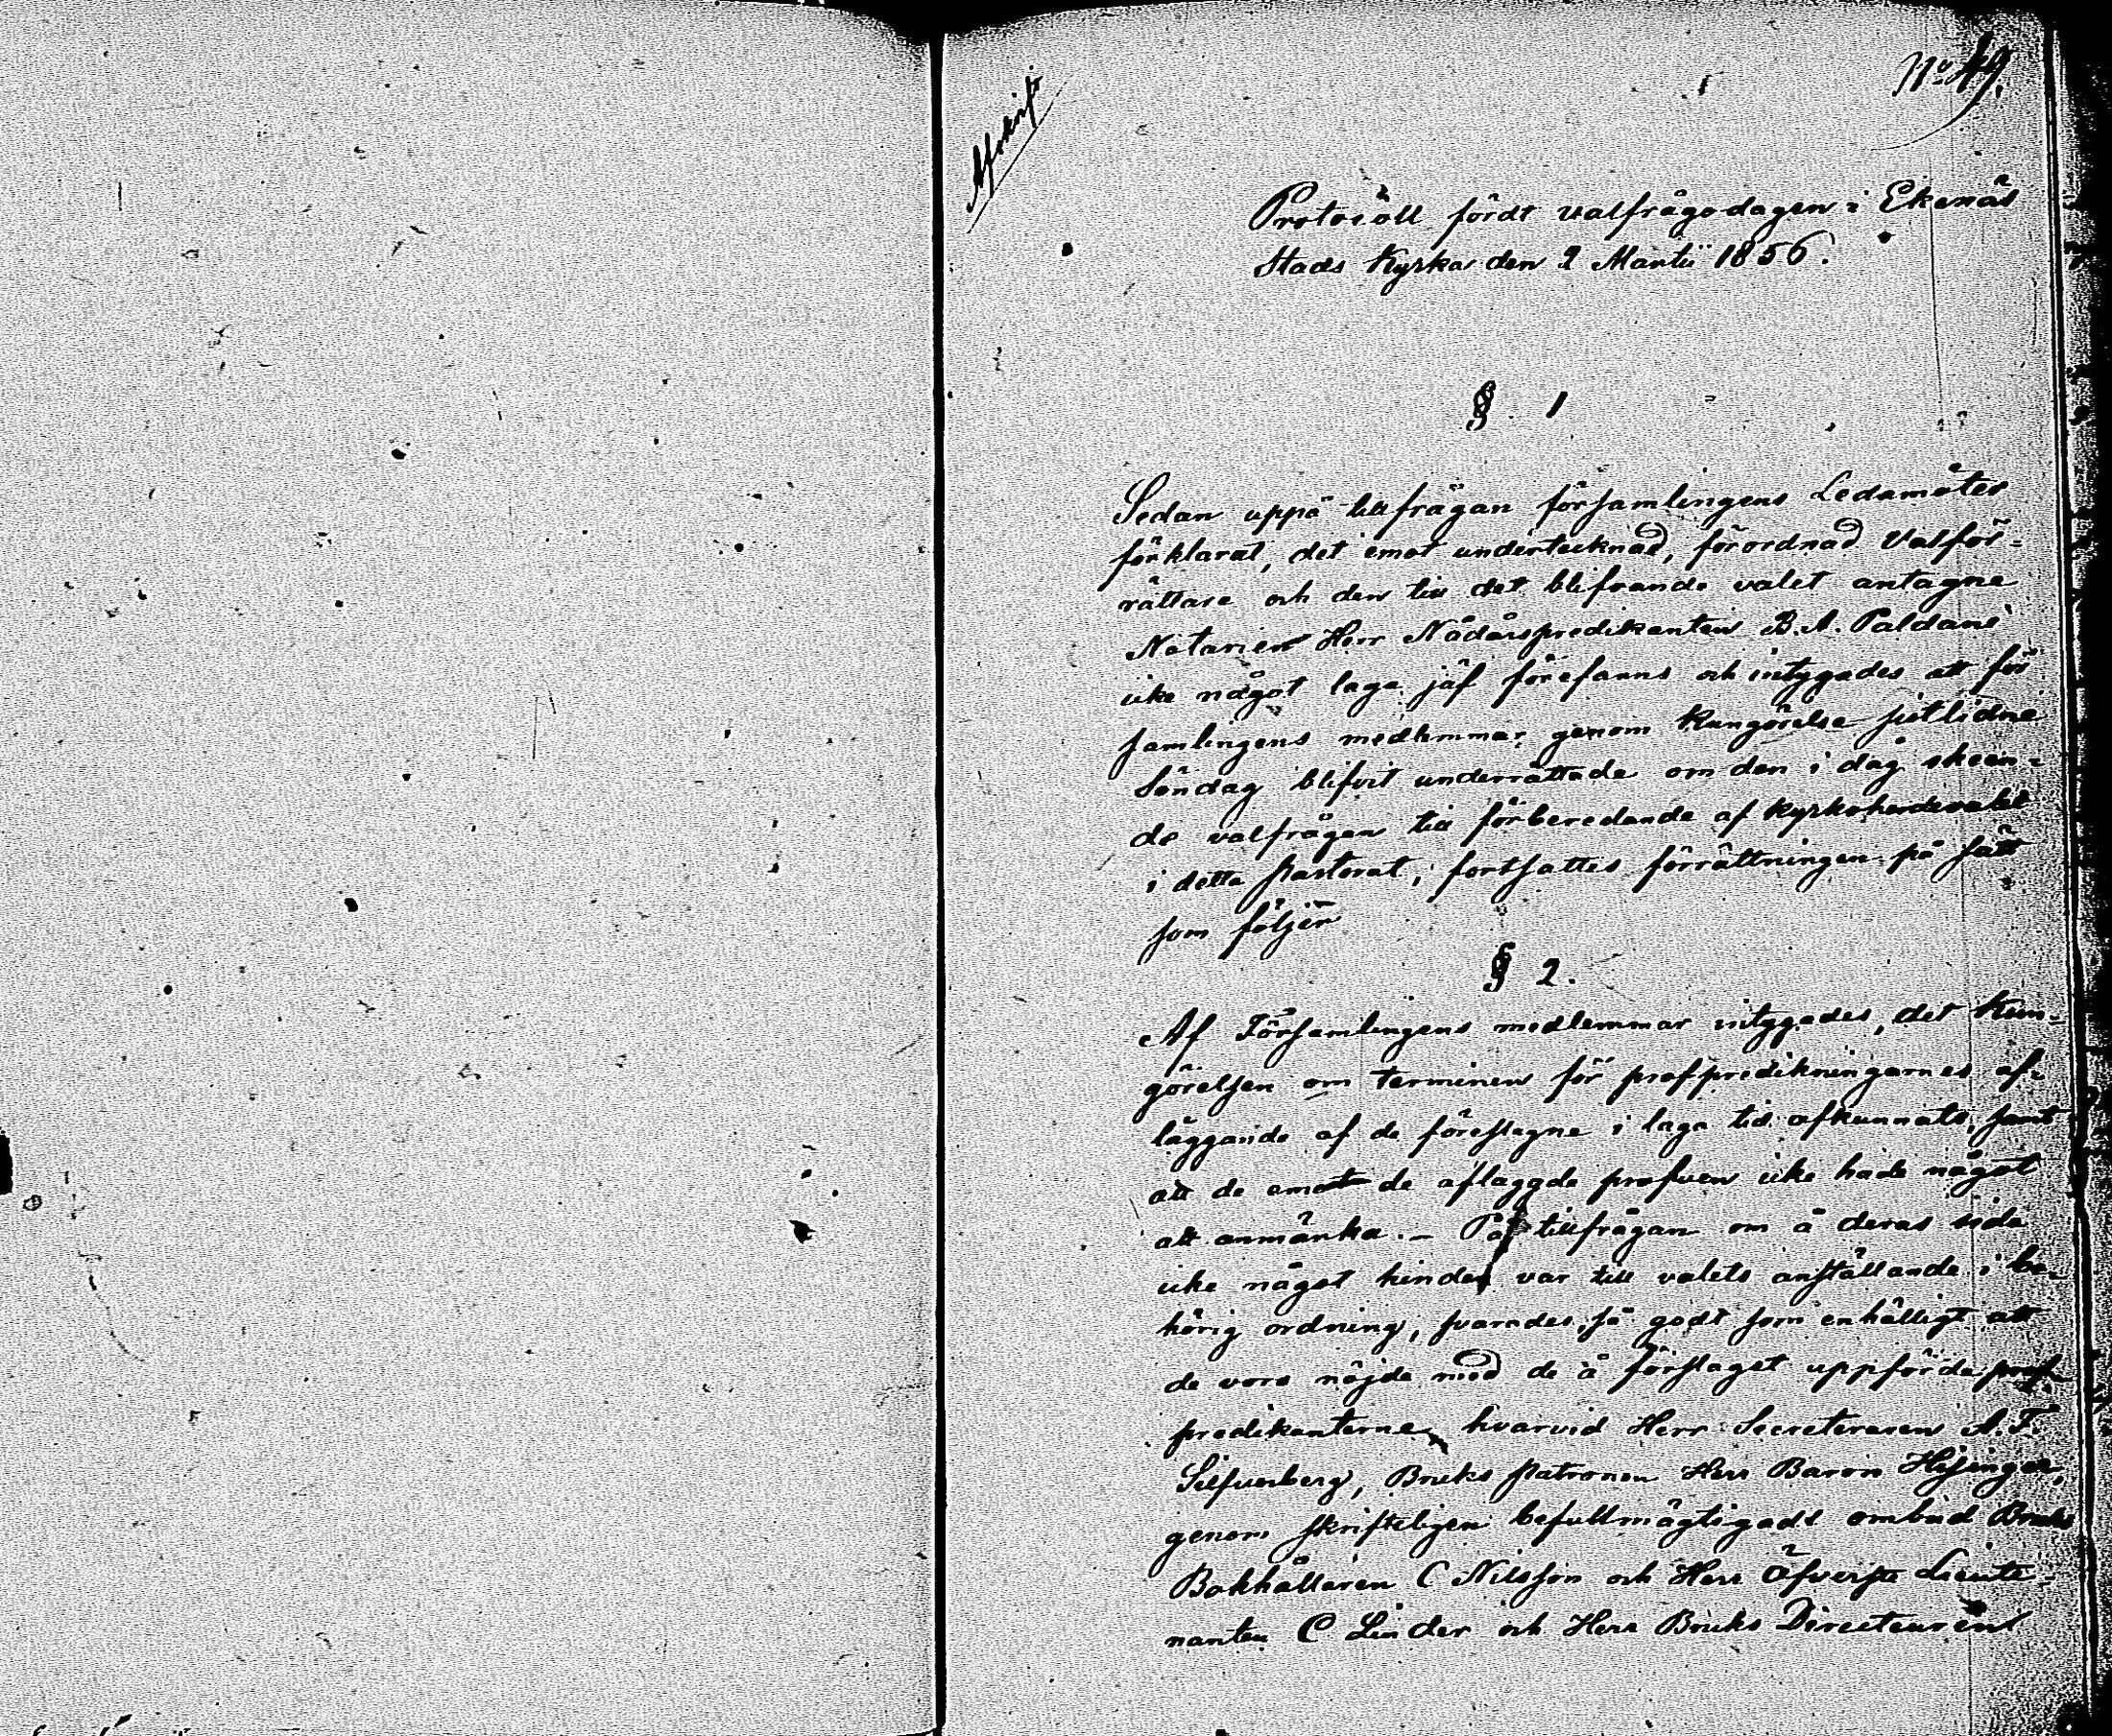 Afskrift
No 49.
Protocoll fördt valfrågodagen i Ekenäs
Stads Kyrka den 2 Martii 1856.
§ 1
Sedan uppå tillfrågan församlingens Ledamöter
förklarat, det emot undertecknad, förordnad Valför-
rättare och den till det blifvande valet antagne
Notarien Herr Nådårspredikanten B. A. Paldani
icke något laga jäf förefanns och intygades att för
samlingens medlemmar genom Kungörelse sistlidne
Söndag blifvit underrättade om den i dag skeen-
de valfrågan till förberedande af Kyrkoherdevalet
i detta pastorat, fortsattes förrättningen på sätt
som följer
§ 2.
Af Församlingens medlemmar intygades, det Kun-
görelsen om terminen för profpredikningarnes af-
läggande af de föreslagne i laga tid afkunnats, samt
att de emot de aflaggde profven icke hade något
att anmärka. – På tillfrågan om å deras sida
icke något hinder var till valets anställande i be-
hörig ordning, svarades så godt som enhälligt att
de voro nöjde med de å förslaget uppförde prof-
predikanterne, hvarvid Herr Secreteraren A. F.
Silfverberg, Bruks Patronen Herr Baron Hisinger,
genom skrifteligen befullmägtigads ombud Bruks
Bokhållaren C Nilsson och Herr Öfverste Lieute-
nanten C Linder och Herr Bruks Directeuren